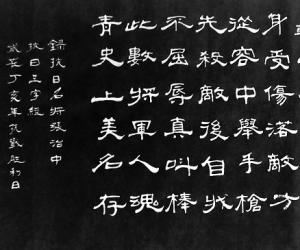 身受傷落敵
從容中舉手槍
先殺敵後自戕
不屈辱真叫棒
此數將軍人魂
青史上美名存
錄抗日名將張治中
抗日三字經
歲在丁亥年抗戰胜利日